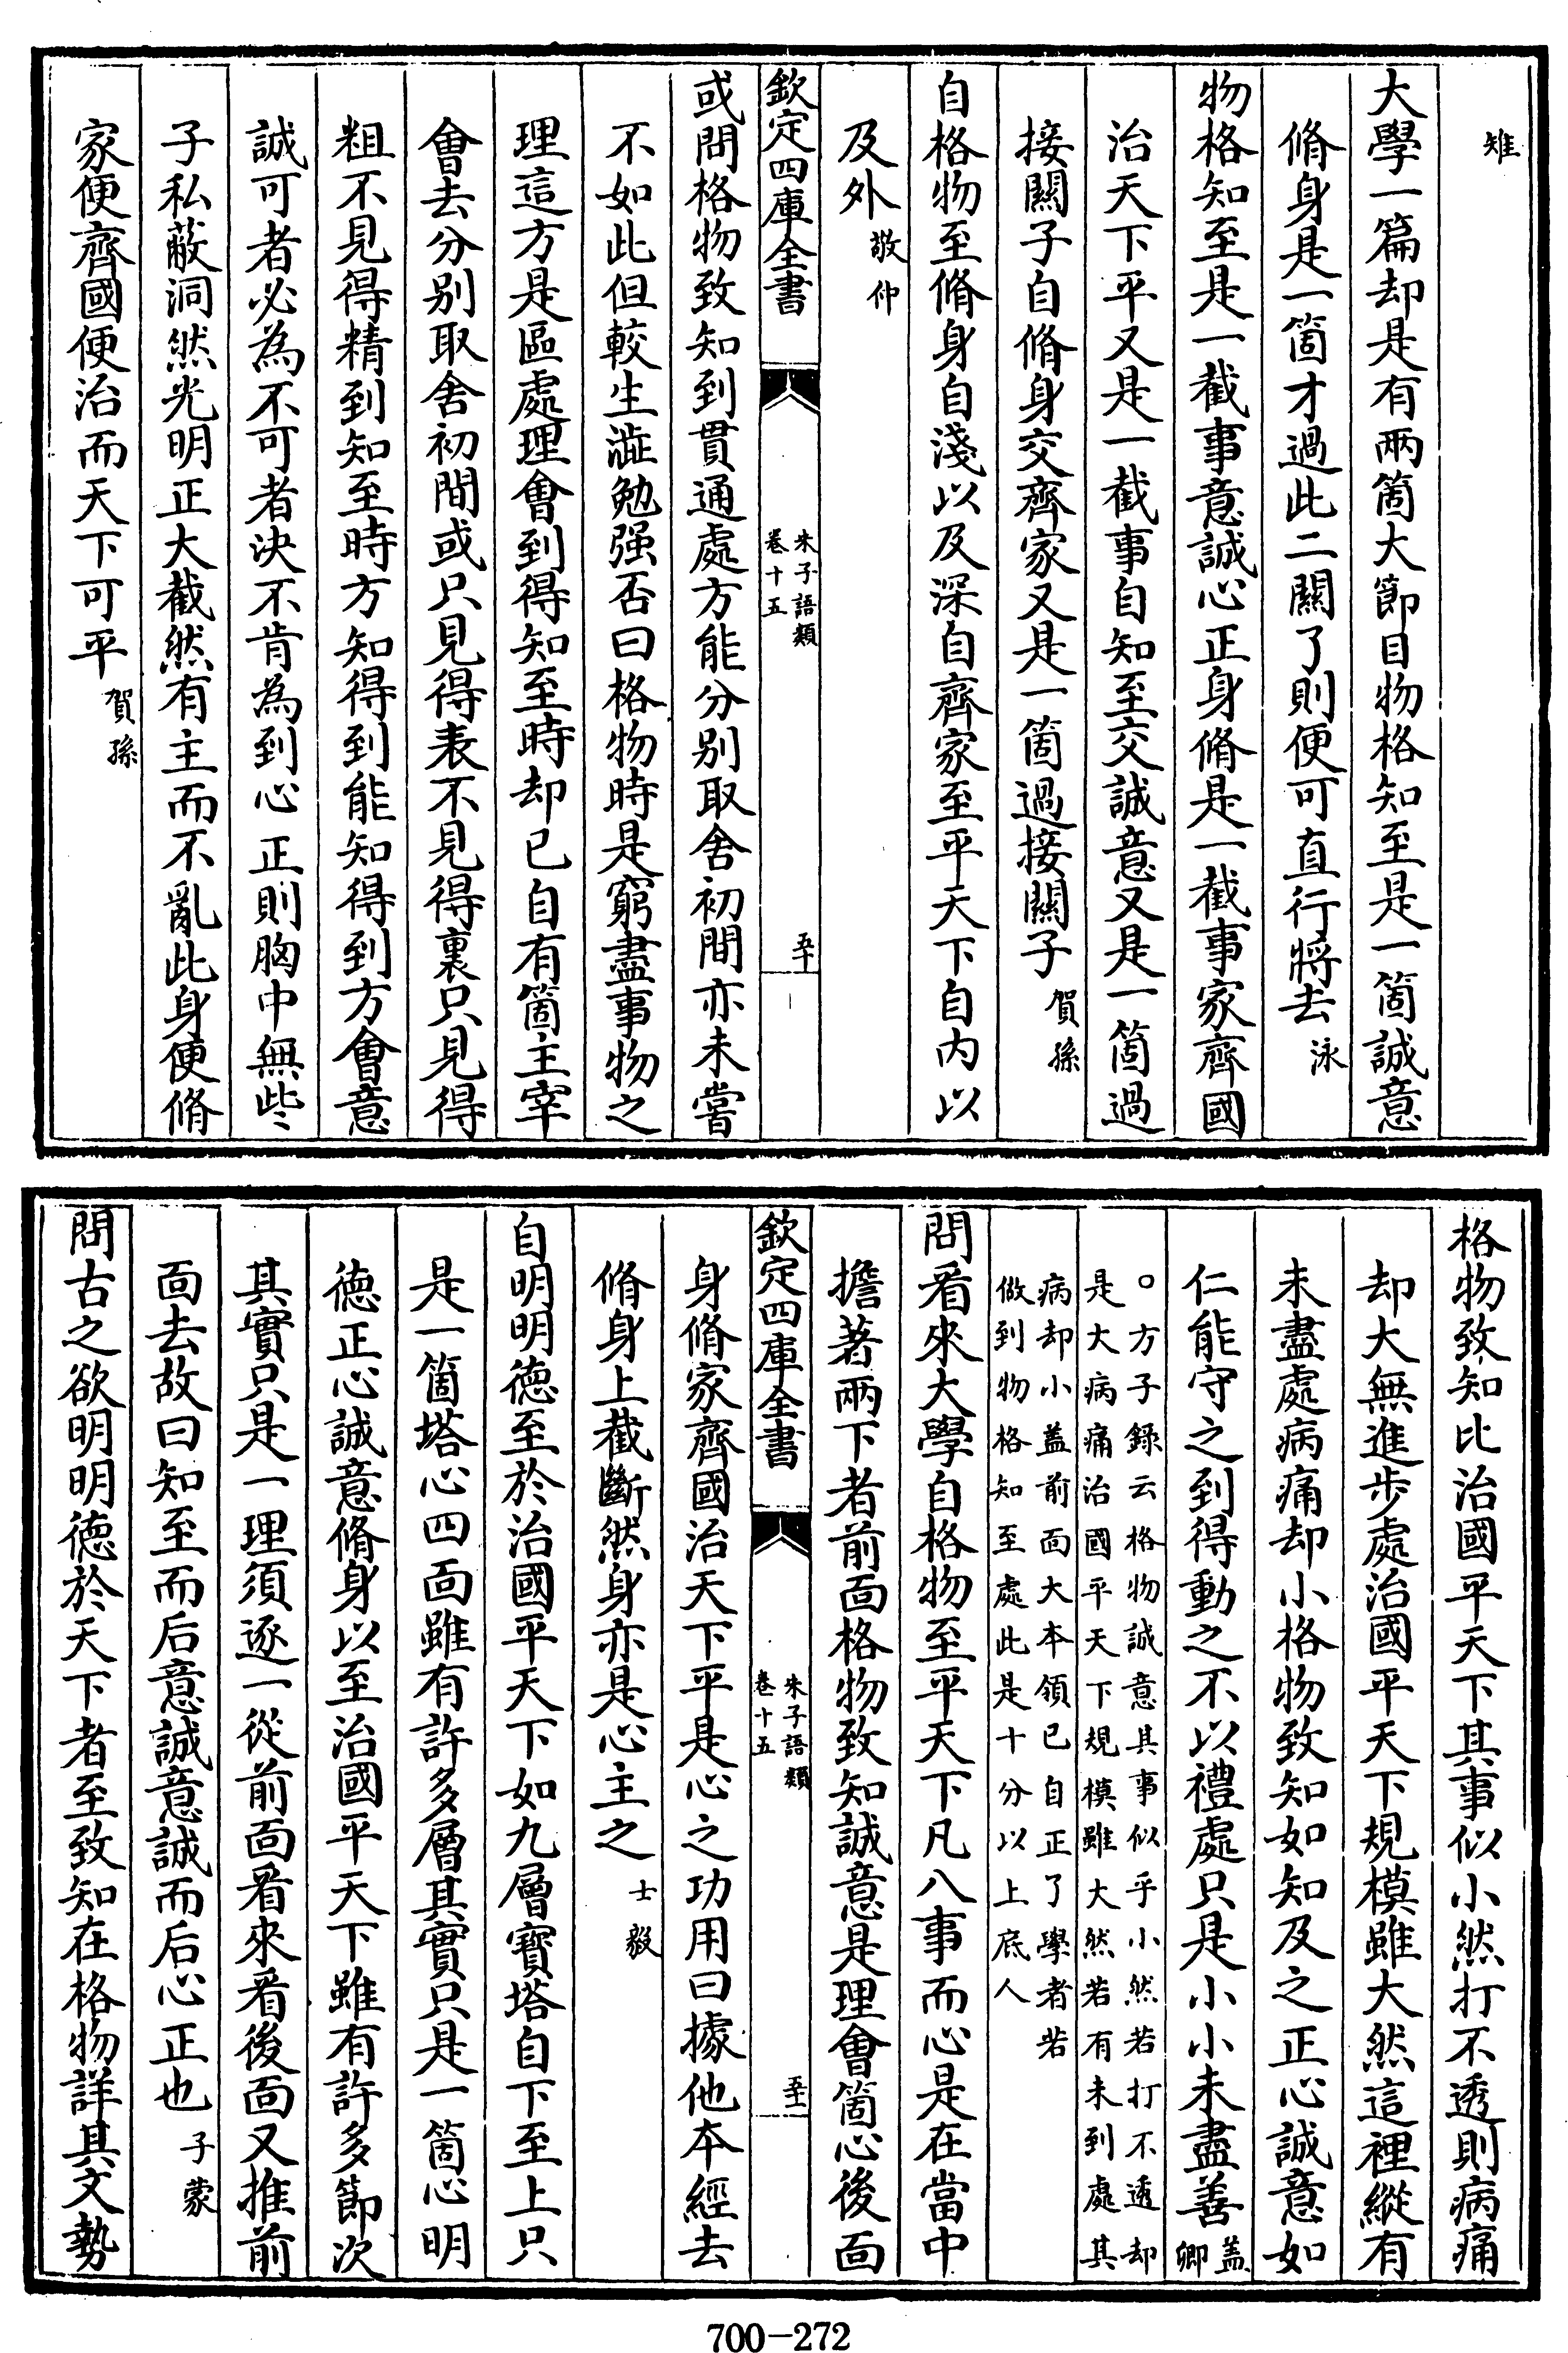 雉
大學一篇却是有兩箇大節目物格知至是一箇誠意
脩身是一箇才過此二關了則便可直行將去泳
物格知至是一截事意誠心正身脩是一截事家齊國
治天下平又是一截事自知至交誠意又是一箇過
接關子自脩身交齊家又是一箇過接關子賀孫
自格物至脩身自淺以及深自齊家至平天下自内以
及外敬仲
欽定四庫全書
朱子語類
卷十五
五十
或問格物致知到貫通處方能分别取舍初間亦未嘗
不如此但較生澁勉强否曰格物時是窮盡事物之
理這方是區處理會到得知至時却已自有箇主宰
會去分别取舍初間或只見得表不見得裏只見得
粗不見得精到知至時方知得到能知得到方會意
誠可者必為不可者決不肯為到心正則胸中無些
子私蔽洞然光明正大截然有主而不亂此身便脩
家便齊國便治而天下可平賀孫
格物致知比治國平天下其事似小然打不透則病痛
却大無進步處治國平天下規模雖大然這裡縱有
未盡處病痛却小格物致知如知及之正心誠意如
仁能守之到得動之不以禮處只是小小未盡善蓋
卿
○方子錄云格物誠意其事似乎小然若打不透却
是大病痛治國平天下規模雖大然若有未到處其
病却小蓋前面大本領已自正了學者若
做到物格知至處此是十分以上底人
問看來大學自格物至平天下凡八事而心是在當中
擔著兩下者前面格物致知誠意是理會箇心後面
欽定四庫全書
朱子語類
卷十五
五十一
身脩家齊國治天下平是心之功用曰據他本經去
脩身上截斷然身亦是心主之士毅
自明明德至於治國平天下如九層寳塔自下至上只
是一箇塔心四面雖有許多層其實只是一箇心明
德正心誠意脩身以至治國平天下雖有許多節次
其實只是一理須逐一從前面看來看後面又推前
面去故曰知至而后意誠意誠而后心正也子蒙
問古之欲明明德於天下者至致知在格物詳其文勢
700-272